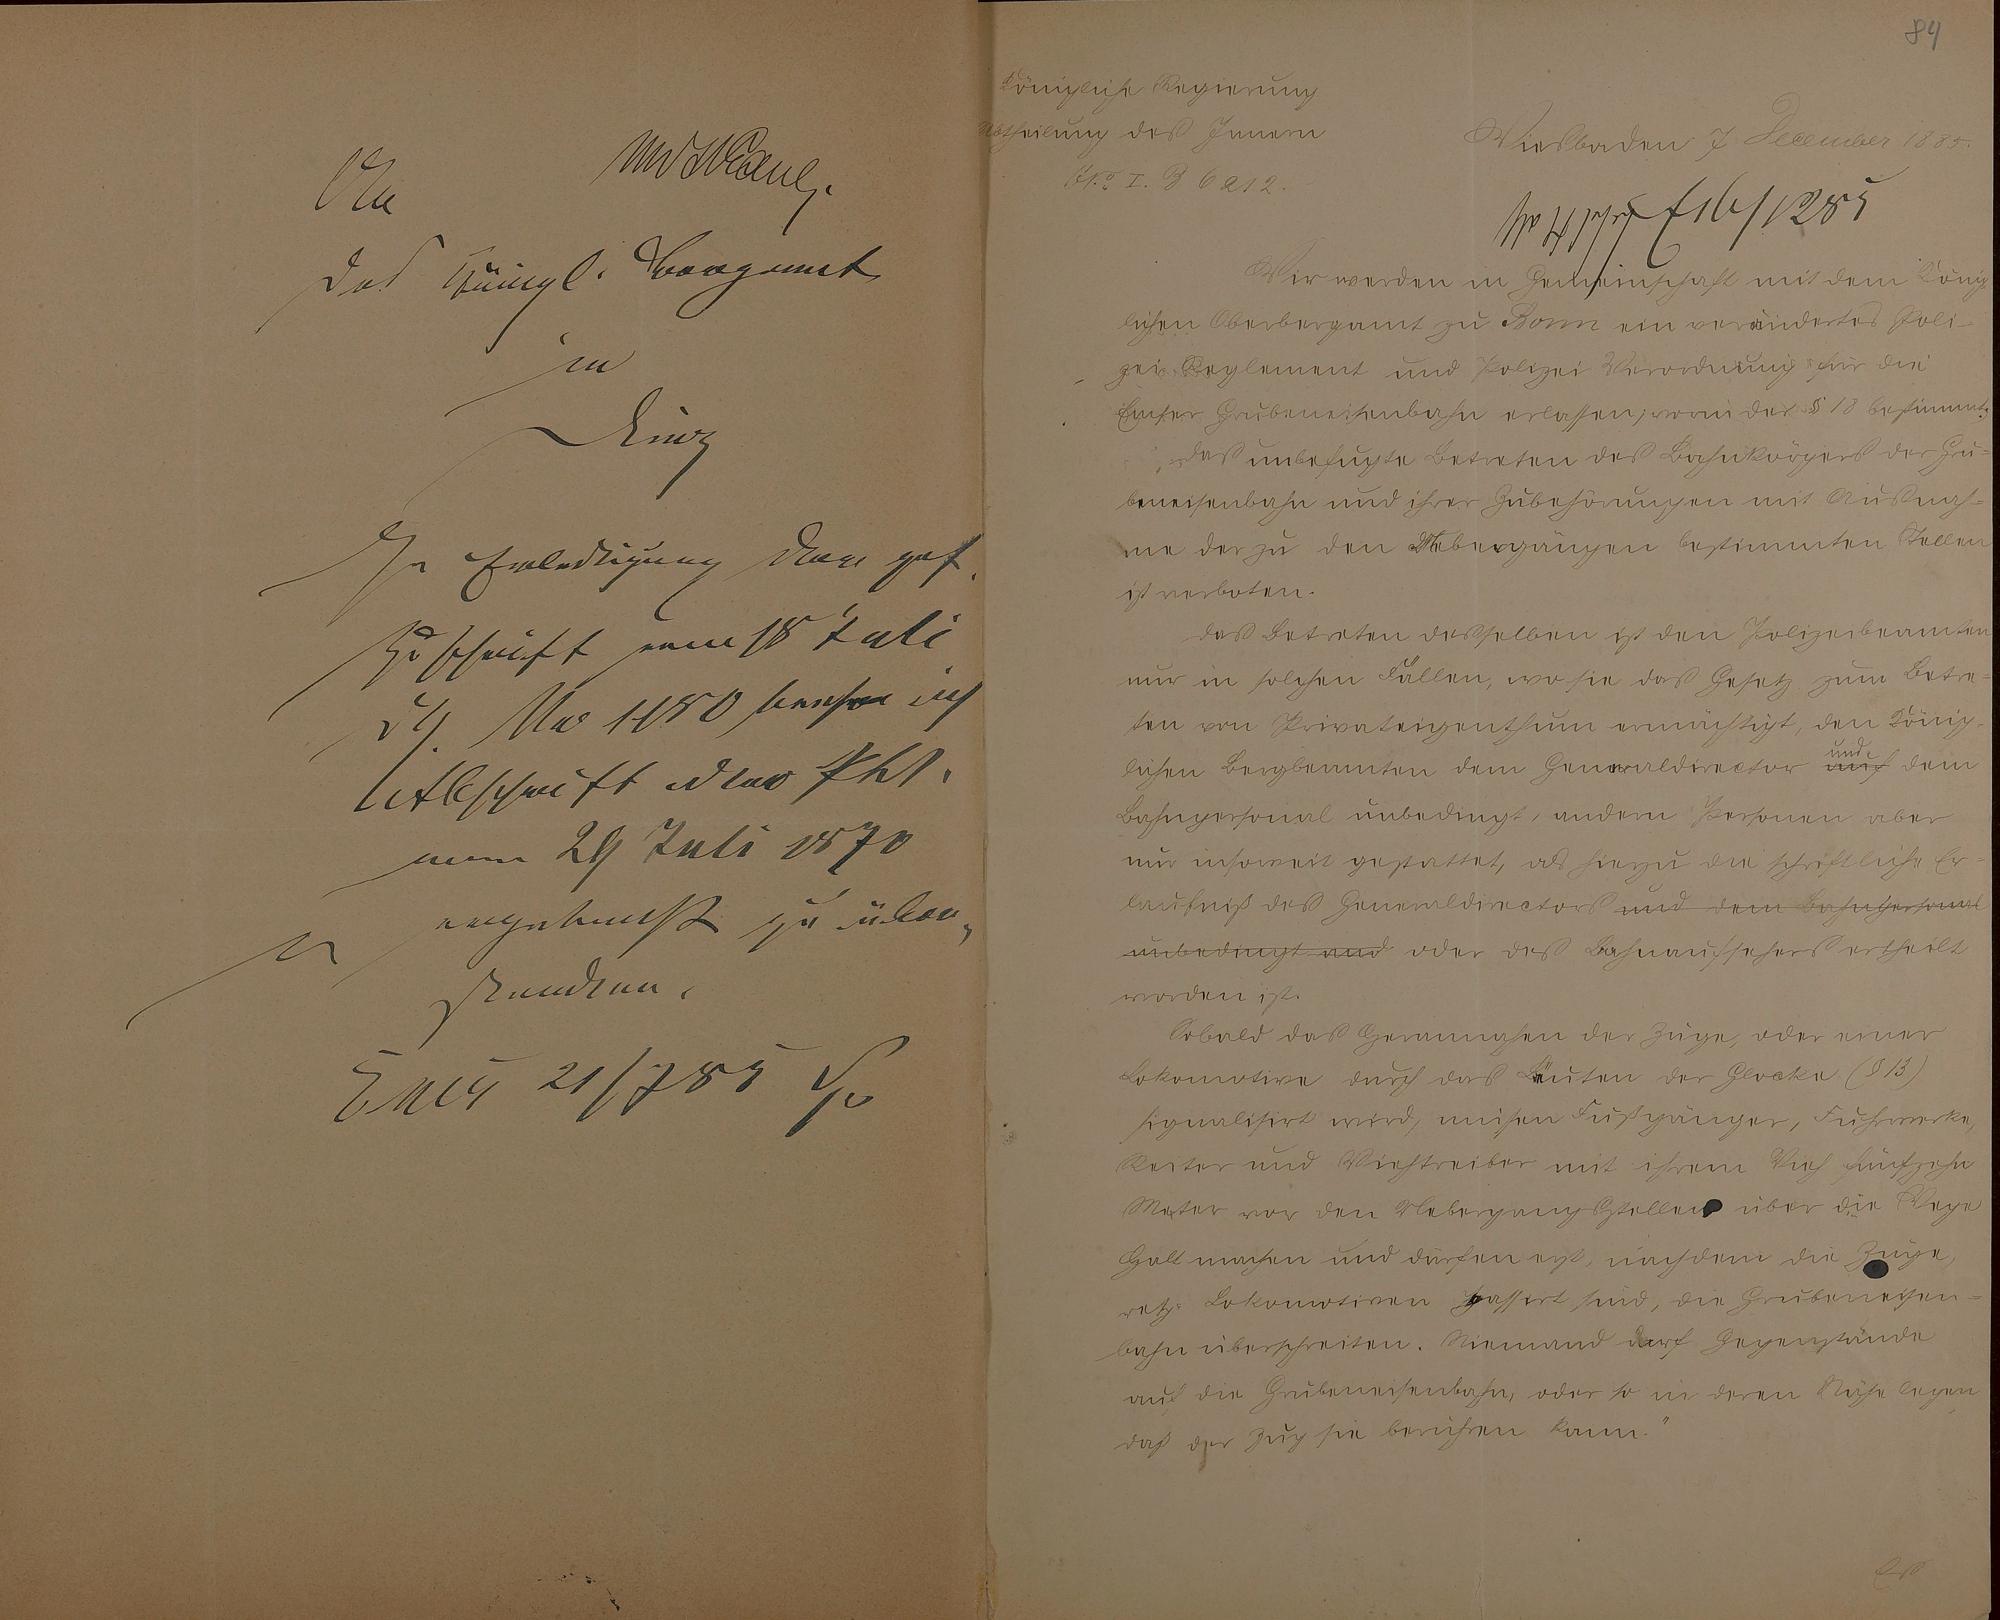 An
das Königl. Bergamt
in
Diez
In Erledigung der gef.
Zuschrift vom 18 Juli
No 1180 ich
Abschrift des
vom 29 Juli 1870
ergebenst zu über-
senden.
Ems 21/7 85
84
Königliche Regierung
Abtheilung des Innern
No I. B 6212.
Wiesbaden 7 December 1885.
E 16/12 85
Wir werden in Gemeinschaft mit dem König-
lichen Oberbergamt zu Bonn ein verändertes Poli-
zei Reglement und Polizei Verordnung für die
Emser Grubeneisenbahn erlassen, worin der § 18 bestimmt:
„das unbefugte Betreten des Bahnkörpers der Gru-
beneisenbahn und ihrer Zubehörungen mit Ausnah-
me der zu den Uebergängen bestimmten Stellen
ist verboten.
Das Betreten desselben ist den Polizeibeamten
nur in solchen Fällen, wo sie das Gesetz zum Betre-
ten von Privateigenthum ermächtigt, den König-
lichen Bergbeamten dem Generaldirector und dem
Bahnpersonal unbedingt, andern Personen aber
nur insoweit gestattet, als hierzu die schriftliche Er-
laubniß des Generaldirectors und dem Bahnpersonal
unbedingt und oder des Bahnaufsehers ertheilt
worden ist.
Sobald das Herannahen der Züge, oder einer
Lokomotive durch das Läuten der Glocke (§ 13)
signalisirt wird, müssen Fußgänger, Fuhrwerke,
Reiter und Viehtreiber mit ihrem Vieh fünfzehn
Meter vor den Uebergangsstellen über die Wege
Halt machen und dürfen erst, nachdem die Züge,
resp: Lokomotiven passirt sind, die Grubeneisen-
bahn überschreiten. Niemand darf Gegenstände
auf die Grubeneisenbahn, oder so in deren Nähe legen
daß der Zug sie berühren kann."